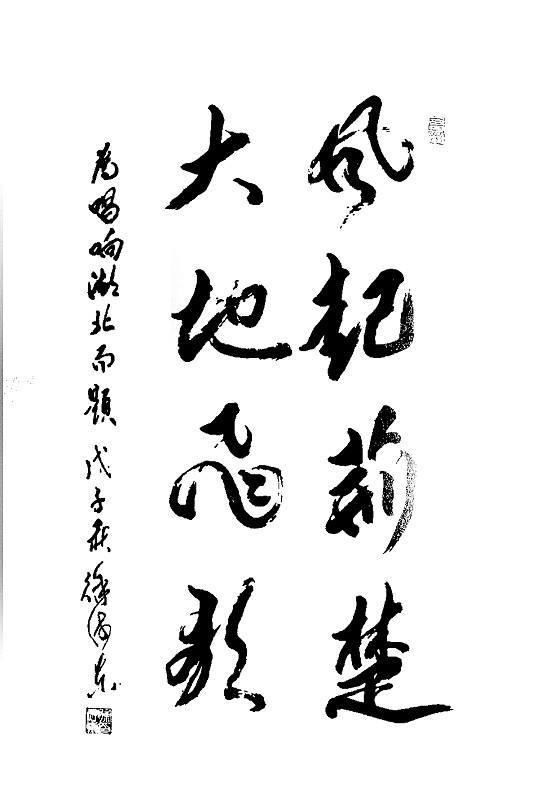 风起荆楚
大地飞歌
为唱响湖北而题 戊子秋 徐